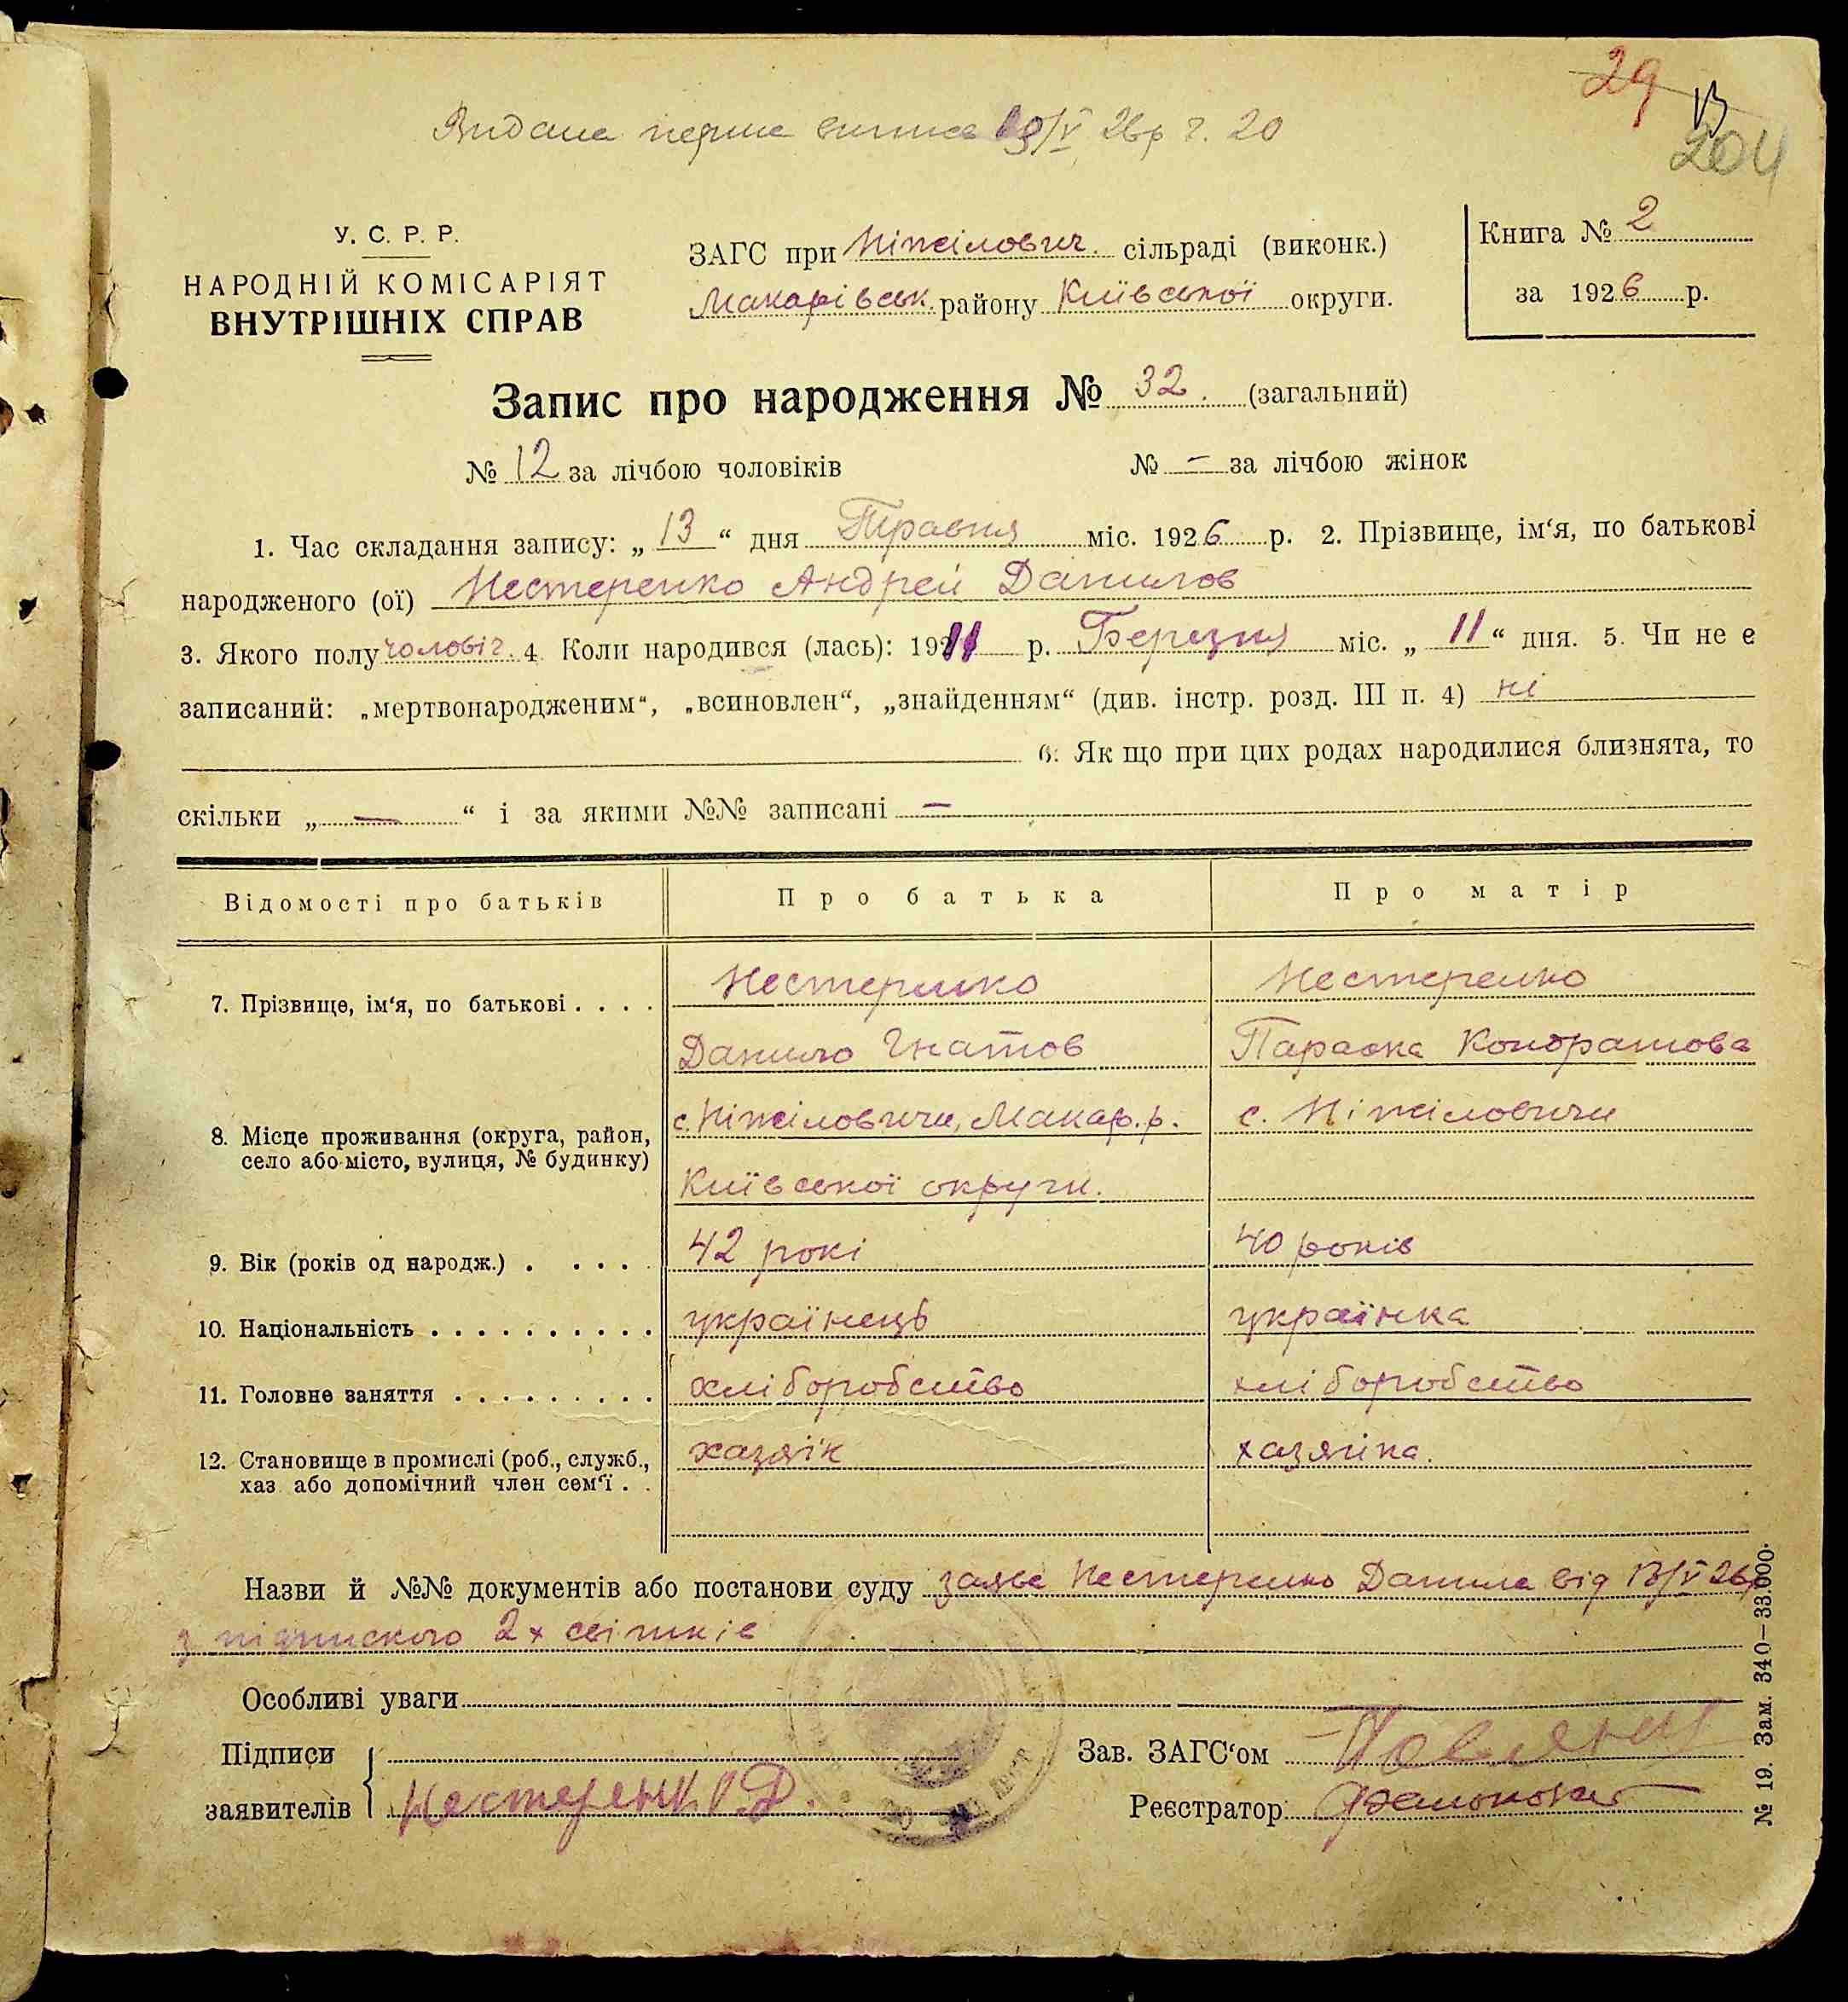 29
13
204
Видана перша виписка 19/V 26р ч. 20
У. С. Р. Р.
НАРОДНІЙ КОМІСАРІЯТ
ВНУТРІШНІХ СПРАВ
ЗАГС при Ніжілович. сільраді (виконк.)
Макарівськ. району Київської округи.
Книга № 2
за 1926 р.
Запис про народження № 32. (загальний)
№ 12 за лічбою чоловіків № – за лічбою жінок
1. Час складання запису: „ 13 “ дня Травня міс. 1926 р. 2. Прізвище, ім‘я, по батькові
народженого (ої) Нестеренко Андрей Данилов
3. Якого полу чоловіч. 4. Коли народився (лась): 1911 р. Березня міс. „ 11 “ дня. 5. Чи не є
записаний: „мертвонародженим“, „всиновлен“, „знайденням“ (див. інстр. розд. III п. 4) ні
6. Як що при цих родах народилися близнята, то
скільки „ — “ і за якими №№ записані —
Відомості про батьків Про батька Про матір
7. Прізвище, ім‘я, по батькові . . . . Нестеренко Нестеренко
Данило Гнатов Параска Кондратова
8. Місце проживання (округа, район, село або місто, вулиця, № будинку) с. Ніжіловичи, Макар. р. с. Ніжіловичи
Київської округи.
9. Вік (років од народж.) . . . . . 42 рокі 40 років
10. Національність . . . . . . . . . . українець українка
11. Головне заняття . . . . . . . . . хліборобство хліборобство
12. Становище в промислі (роб., служб., хаз. або допомічний член сем‘ї . . хазяїн хазяїка.
Назви й №№ документів або постанови суду заява Нестеренко Данила від 13/V 26р
з підпискою 2х свідків
Особливі уваги
Підписи
заявителів Нестеренко Д.
Зав. ЗАГС‘ом
Реєстратор
№ 19. Зам. 340—33.000.